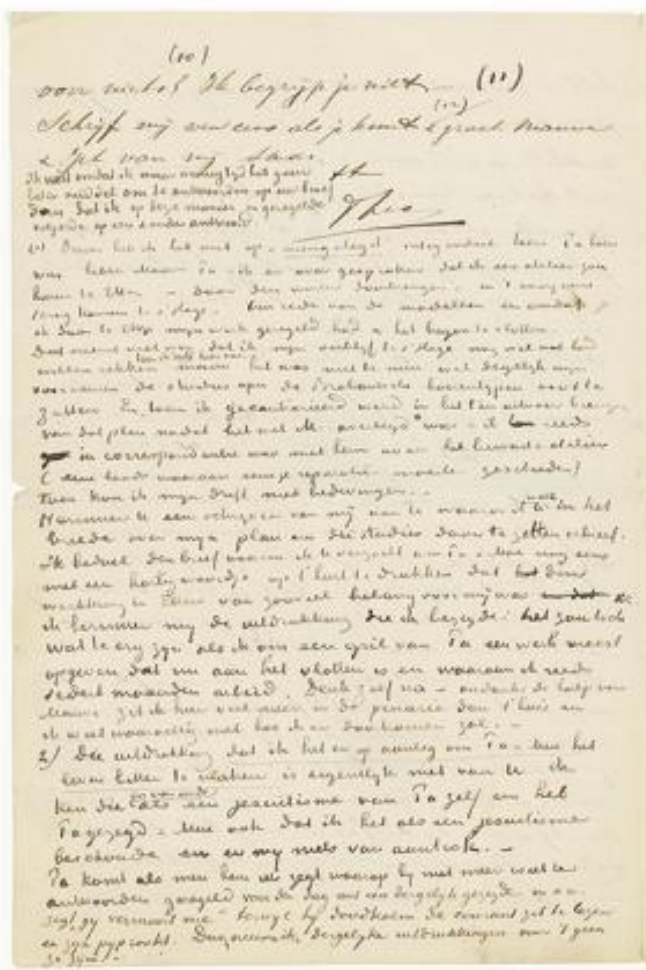 (10)
voor niets? Ik begrijp je niet (11)
Schrijf mij eens als je kunt & groet Mauve
(12)
& Jet van mij
tt
Theo
Ik wil omdat ik maar weinig tijd heb geen
beter middel om te antwoorden op uw brief
dan dat ik op deze manier in geregelde
volgorde op een & ander antwoord
1) heb ik het niet op aangelegd integendeel toen Pa hier
was hebben Mauve Pa & ik er over gesproken dat ik een atelier zou
huren te Etten – daar den winter doorbrengen. in 't voorjaar
terug komen te s'Hage. Om rede van de modellen en omdat
ik daar te Etten mijn werk geregeld had & het begon te vlotten.
dat ik mijn verblijf te s'Hage nog wel wat had
willen rekken het was niet te min wel degelijk mijn
voornemen de studies naar de Brabantsche boerentypen voort te
zetten En toen ik gecontrarieerd werd in het ten uitvoer brengen
van dat plan nadat het met Mauve overlegd was & ik reeds
in correspondentie was met hem over het bewuste atelier
(eene loods waaraan eenige reparatie moeten geschieden)
toen kon ik mijn drift niet bedwingen.
Herinner U een schrijven van mij aan U waarin ik in het
breede over mijn plan om die studies door te zetten schreef.
Ik bedoel den brief waarin ik U verzocht om Pa & Moe nog eens
met een hartig woordje op 't hart te drukken dat hun
medewerking in Etten van zooveel belang voor mij was
ik herinner mij de uitdrukking die ik bezigde: het zou toch
wat te erg zijn als ik om een gril van Pa een werk moest
opgeven dat nu aan het vlotten is en waaraan ik reeds
sedert maanden arbeid. Denk zelf na – ondanks de hulp van
Mauve zit ik hier veel meer in de penarie dan t'huis en
ik weet waarachtig niet hoe ik er door komen zal. –
2) Die uitdrukking dat ik het er op aanleg om Pa & Moe het
leven bitter te maken is eigenlijk niet van U ik
ken die als een jesuitisme van Pa zelf en heb
Pa gezegd & Moe ook dat ik het als een jesuitisme
beschouwde en er mij niets van aantrok. –
Pa komt als men hem iets zegt waarop hij niet meer weet te
antwoorden geregeld voor den dag met een dergelijk gezegde en o.a.
zegt „gij vermoord me" terwijl hij doodkalm de courant zit te lezen
en zijn pijp rookt. Dus neem ik dergelijke uitdrukkingen voor 't geen
ze zijn. –